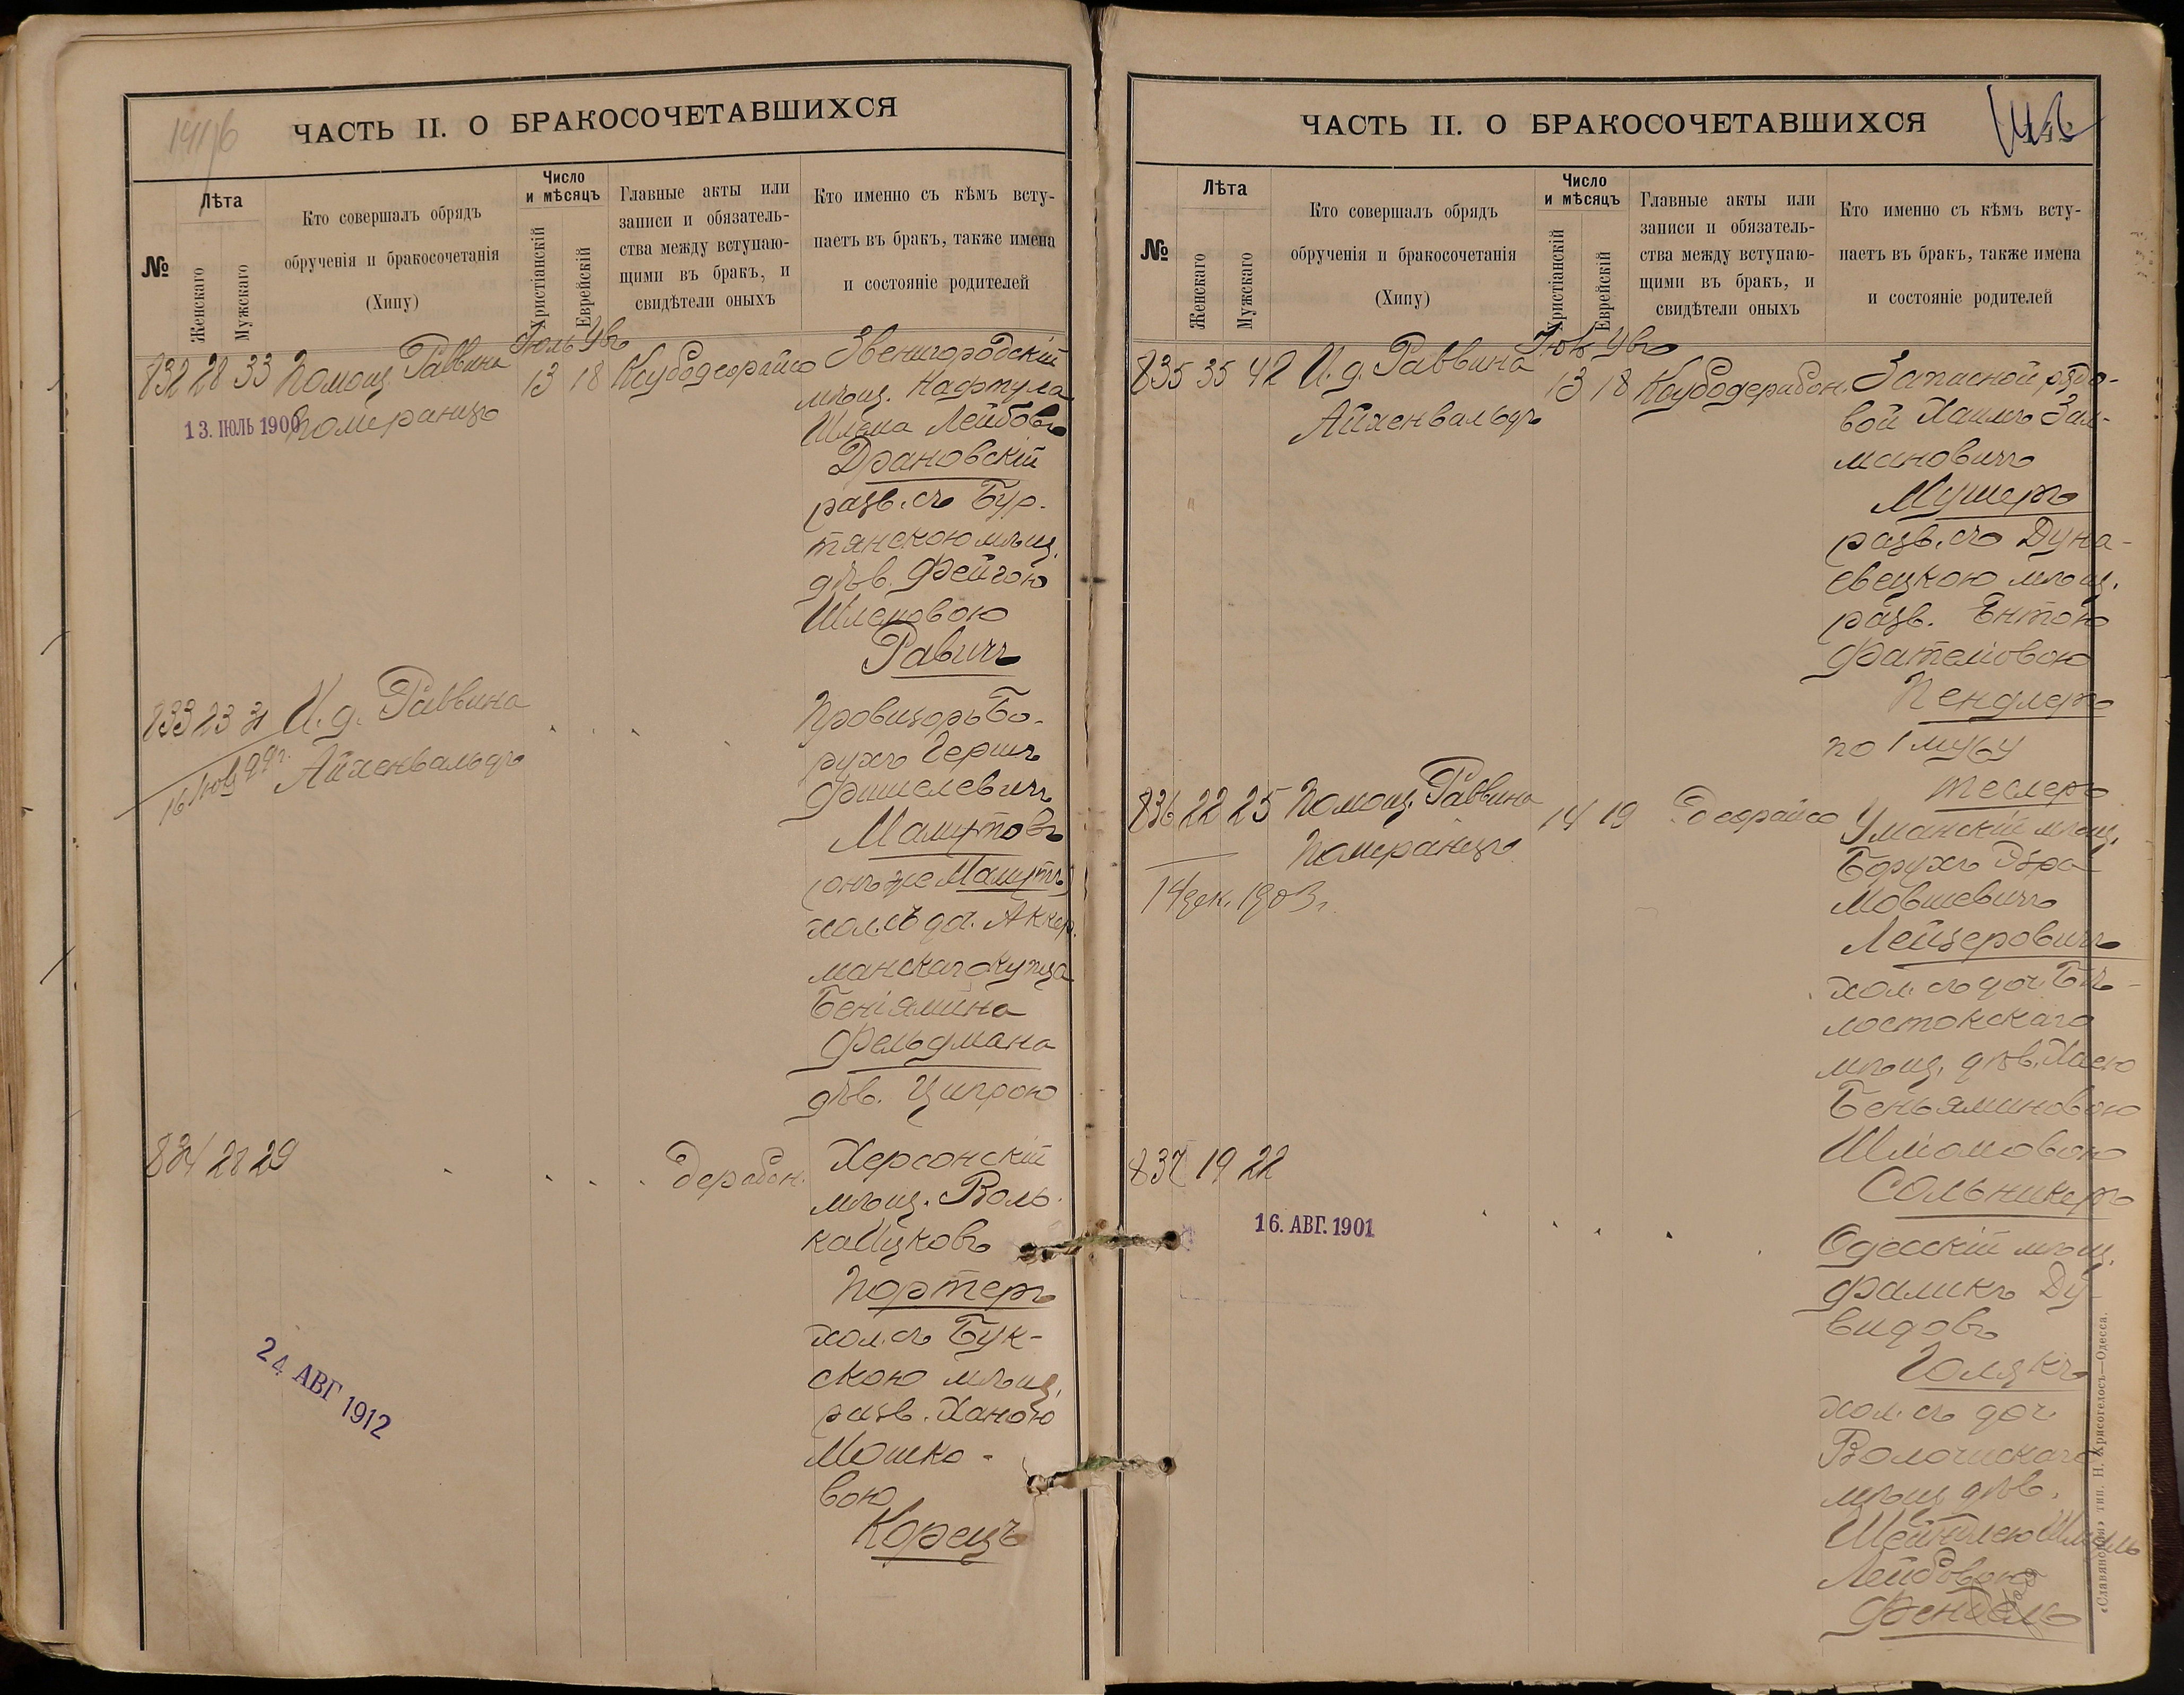 ЧАСТЬ II. О БРАКОСОЧЕТАВШИХСЯ
№
Лѣта
Женскаго
Мужскаго
Кто совершалъ обрядъ
обрученія и бракосочетанія
(Хипу)
Число
и мѣсяцъ
Христіанскій
Еврейскій
Главные акты или
записи и обязатель-
ства между вступаю-
щими въ бракъ, и
свидѣтели оныхъ
Кто именно съ кѣмъ всту-
паетъ въ бракъ, также имена
и состояніе родителей
832 28 33 Помощ. Раввина
Померанцъ
13. ІЮЛЬ 1900
Іюль
13 18
Звенигородскій
мѣщ. Нафтула
Шлема Лейбовъ
Драновскій
разв. съ Бур-
тянскою мѣщ.
дѣв. Фейгою
Шлемовою
Равичъ
833 23 31 И. д. Раввина
Айхенвальдъ
Провизоръ Бо-
рухъ Гершъ
Фишелевичъ
Машутовъ
(онъ же Машутъ)
хол. съ доч. Аккер-
манскаго купца
Беніямина
Фельдмана
дѣв. Ципрою
834 28 29
24 АВГ 1912
Херсонскій
мѣщ. Воль-
ка Ицковъ
Портеръ
хол. съ Бук-
скою мѣщ.
разв. Ханою
Мошко-
вою
Корецъ
ЧАСТЬ II. О БРАКОСОЧЕТАВШИХСЯ
№
Лѣта
Женскаго
Мужскаго
Кто совершалъ обрядъ
обрученія и бракосочетанія
(Хипу)
Число
и мѣсяцъ
Христіанскій
Еврейскій
Главные акты или
записи и обязатель-
ства между вступаю-
щими въ бракъ, и
свидѣтели оныхъ
Кто именно съ кѣмъ всту-
паетъ въ бракъ, также имена
и состояніе родителей
835 35 42 И. д. Раввина
Айхенвальдъ
13 18
Запасной рядо-
вой Хаимъ Зал-
мановичъ
Мушеръ
разв. съ Дуна-
евецкою мѣщ.
разв. Ентою
Фателіовою
Пендлеръ
по 1 мужу
Теслеръ
836 22 25 Помощ. Раввина
Померанцъ
14 дек. 1903 г.
14 19
Уманскій мѣщ.
Борухъ
Мовшевичъ
Лейзеровичъ
хол. съ доч. Бѣ-
лостокскаго
мѣщ. дѣв. Хаею
Беньяминовою
Шліомовою
Сольникеръ
837 19 22
16. АВГ. 1901
Одесскій мѣщ.
Фаликъ Ду-
видовъ
Голякъ
хол. съ доч.
Волочискаго
мѣщ. дѣв.
Лейбовою
«Славянская» тип. Н. Хрисогелосъ—Одесса.